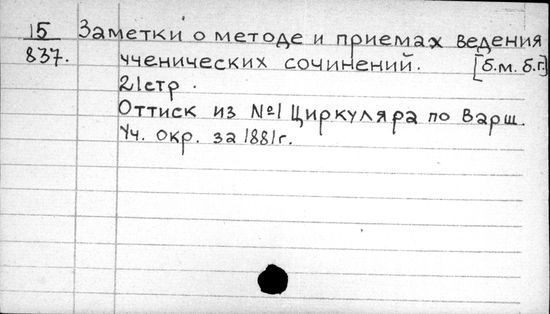 15 Заметки о методе и приемах ведения
837. ученических сочинений. [б.м. б.г.]
21 стр.
Оттиск из №1 Циркуляра по Варш.
Уч. окр. за 1881г.